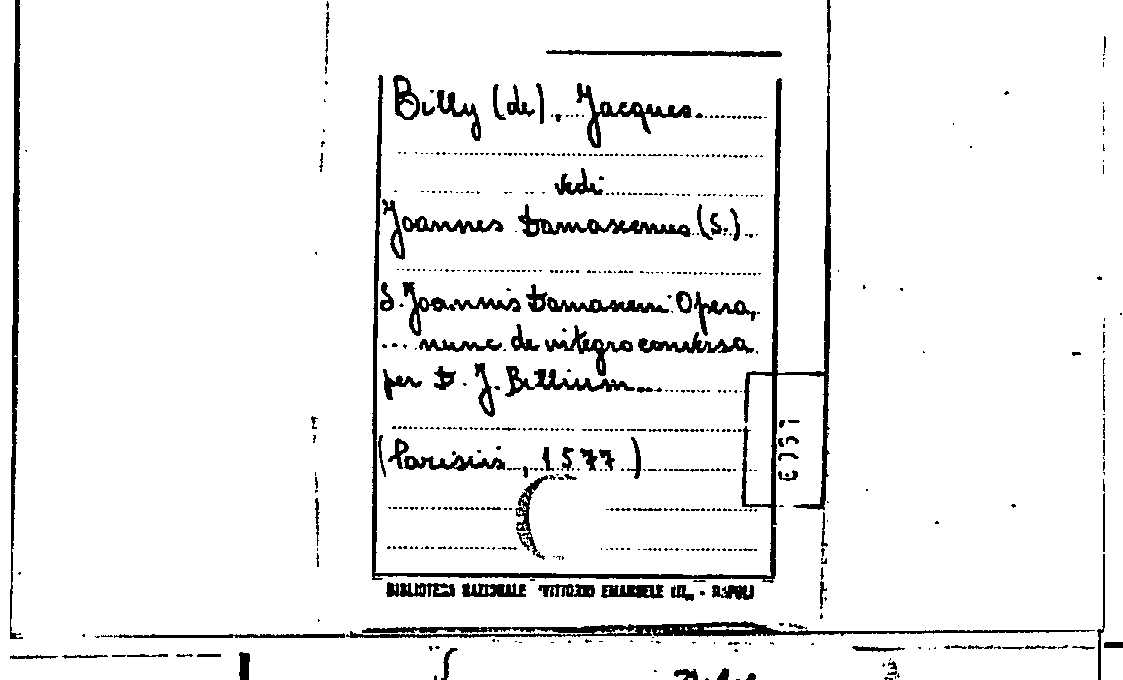 Billy (de), Jacques.
vedi
Joannes Damascenus (S.)
S. Joannis Damasceni Opera,
... nunc de integro conversa
per D. J. Billium...
(Parisiis, 1577)
BIBLIOTECA NAZIONALE "VITTORIO EMANUELE III" - NAPOLI